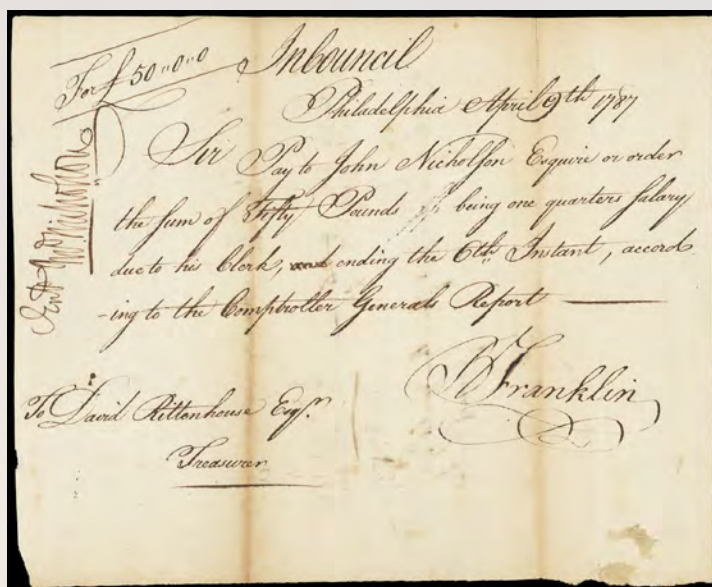 For £ 50"0"0
In Council
Philadelphia April 9th 1787
Sir Pay to John Nicholson Esquire or order
the sum of Fifty Pounds being one quarters salary
due to his Clerk, and ending the 6th Instant, accord
-ing to the Comptroller Generals Report
B Franklin
To David Rittenhouse Esqr.
Treasurer
Jno. Nicholson